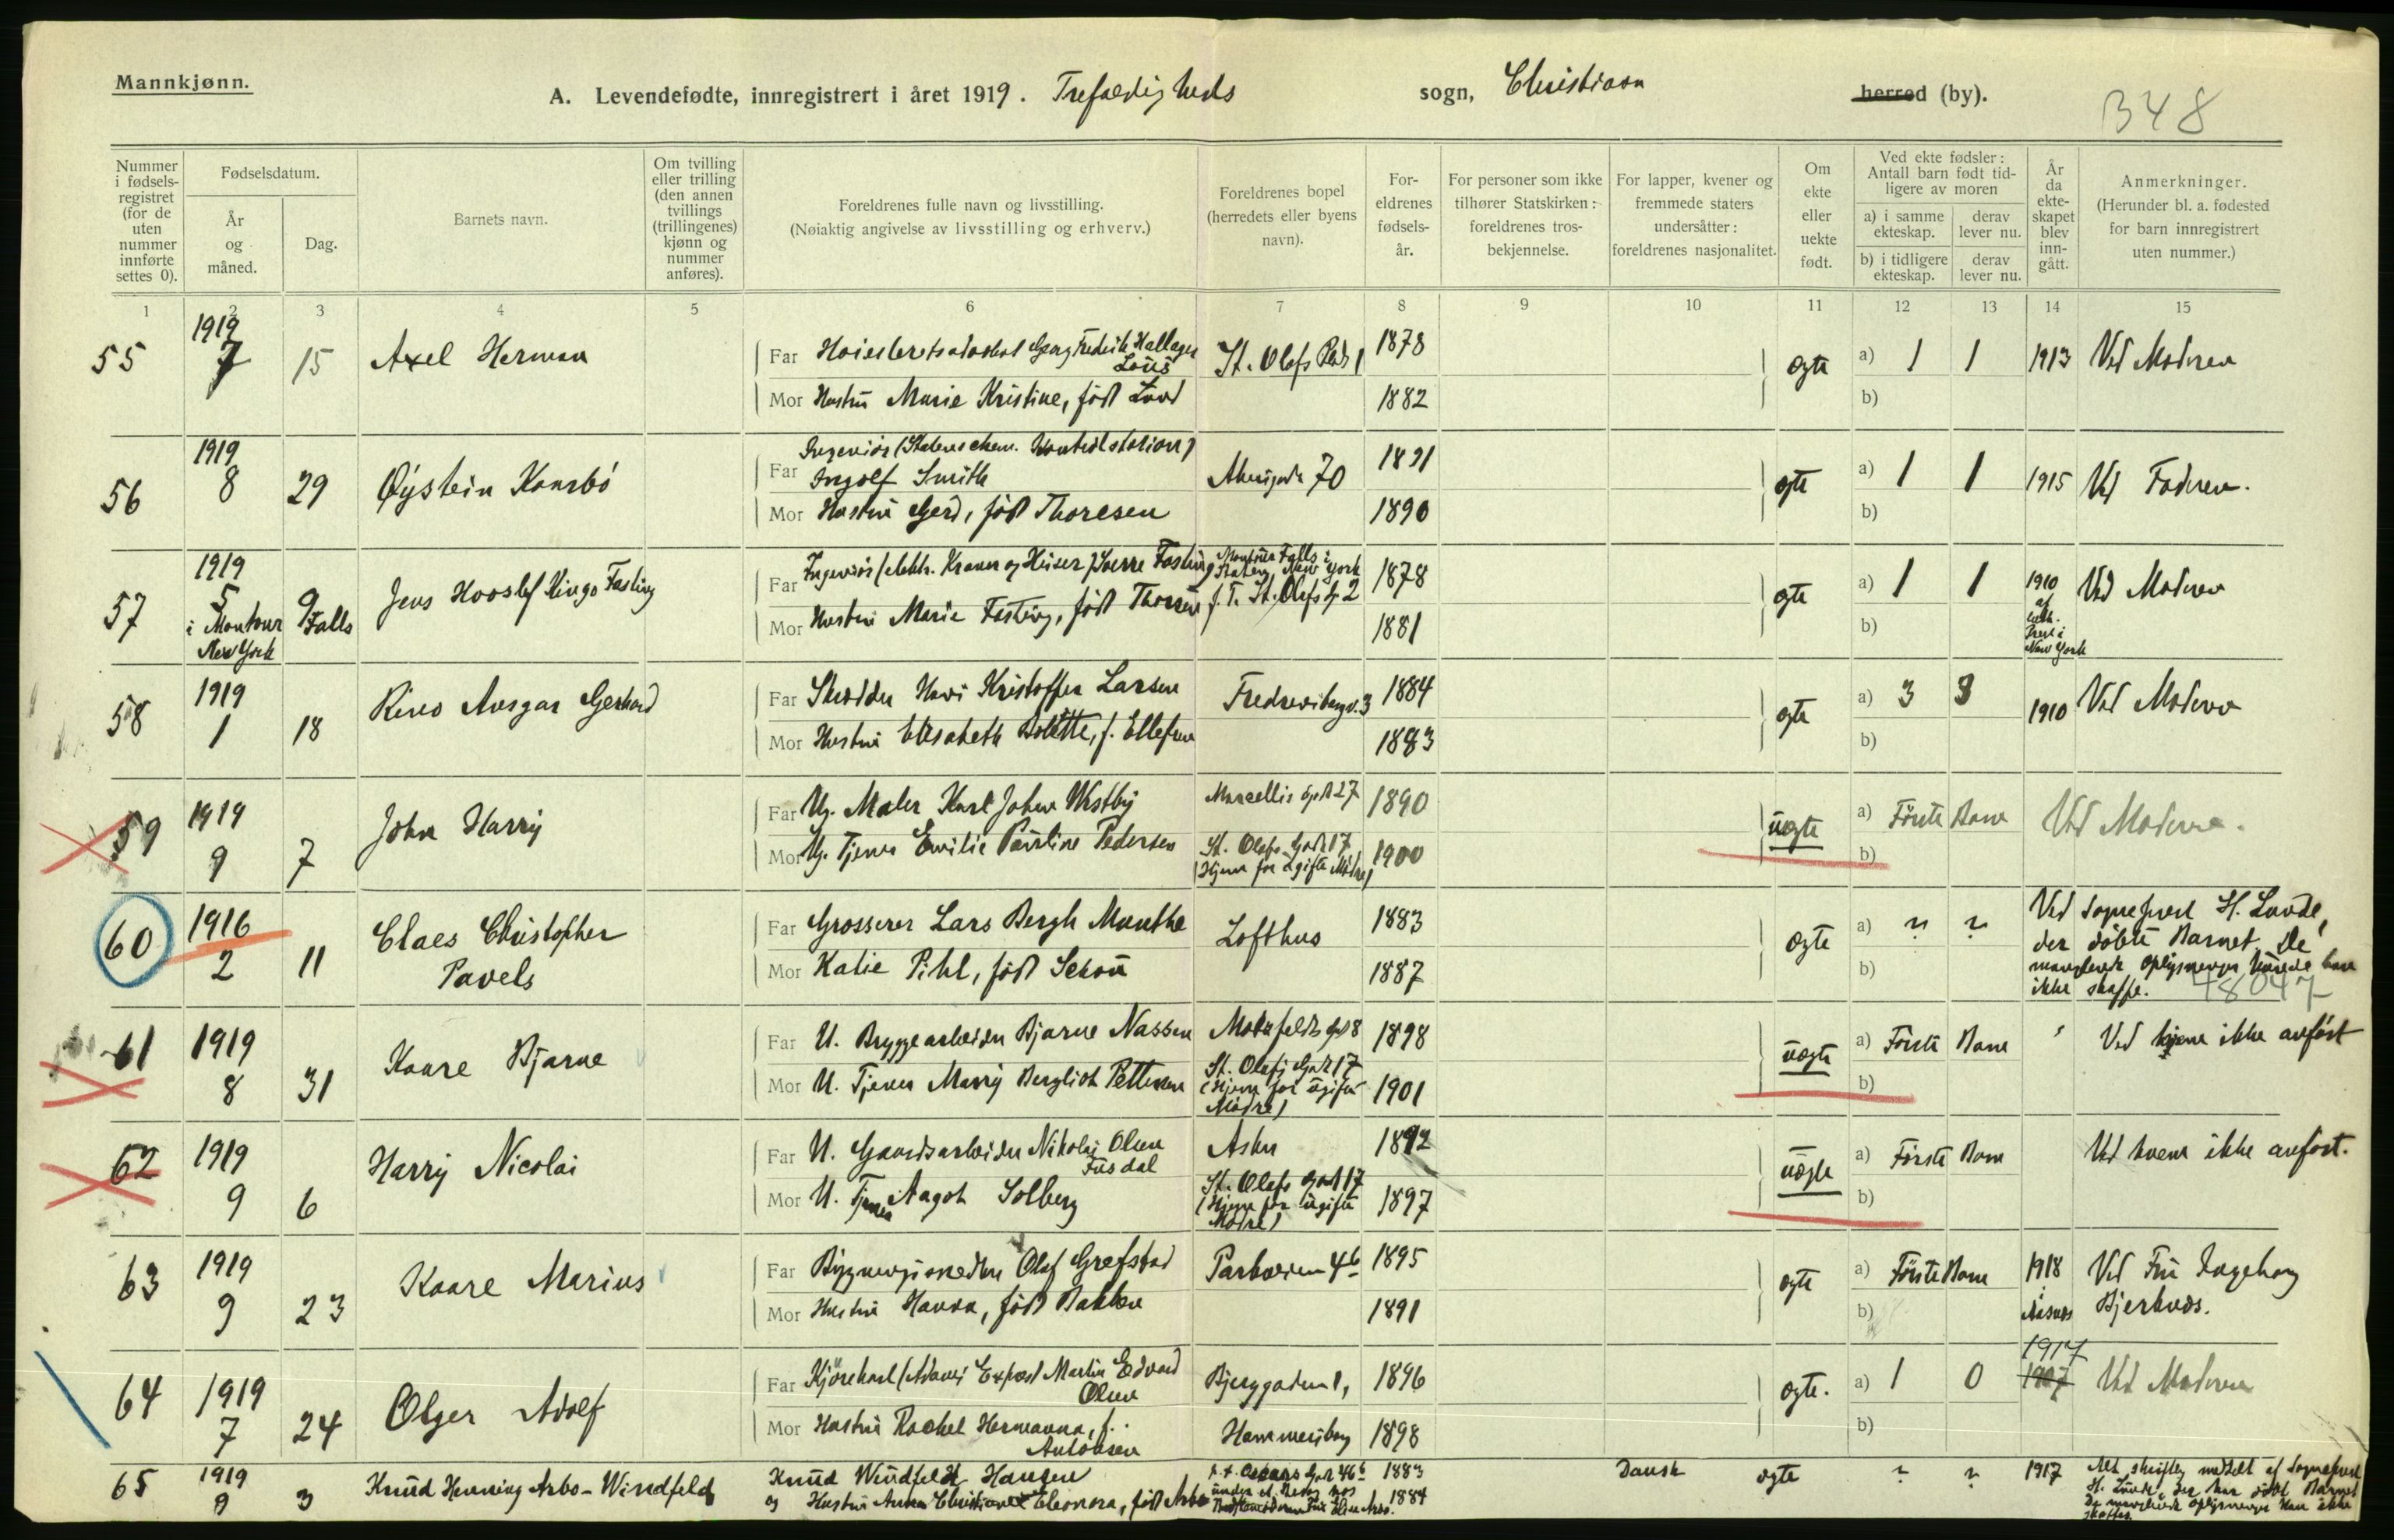 Mannkjønn.
A. Levendefødte, innregistrert i året 1919. Trefoldigheds sogn, Christiania herred (by).
B48
Nummer i fødselsregistret (for de uten nummer innførte settes 0).
Fødselsdatum.
År og måned.
Dag.
Barnets navn.
Om tvilling eller trilling (den annen tvillings (trillingenes) kjønn og nummer anføres).
Foreldrenes fulle navn og livsstilling.
(Nøiaktig angivelse av livsstilling og erhverv.)
Foreldrenes bopel (herredets eller byens navn).
Foreldrenes fødselsår.
For personer som ikke tilhører Statskirken: foreldrenes trosbekjennelse.
For lapper, kvener og fremmede staters undersåtter: foreldrenes nasjonalitet.
Om ekte eller uekte født.
Ved ekte fødsler: Antall barn født tidligere av moren
a) i samme ekteskap.
derav lever nu.
b) i tidligere ekteskap.
derav lever nu.
År da ekteskapet blev inngått.
Anmerkninger.
(Herunder bl. a. fødested for barn innregistrert uten nummer.)
1 2 3 4 5 6 7 8 9 10 11 12 13 14 15
55 1919 7 15 Axel Herman
Far Høiesteretsadvokat Georg Fredrik Hallager Louis St. Olafs Plads 1 1878
Mor Hustru Marie Kristine, født Lund 1882
ægte a) 1 1 1913 Ved Moderen
b)
56 1919 8 29 Øystein
Far Ingeniør (Statens chem. Kontrolstation) Ingolf Smith Akersgade 70 1891
Mor Hustru Gerd, født Thoresen 1890
ægte a) 1 1 1915 Ved Faderen.
b)
57 1919 5 9 i Montour Falls New York Jens Kingo Fasting
Far Ingeniør (elektr. Kraner og Heiser) Sverre Fasting Montour Falls i Staten New York 1878
Mor Hustru Marie Fasting, født f. T. St. Olafs g 2 1881
ægte a) 1 1 1910 af luth. Prest i New York Ved Moderen
b)
58 1919 1 18 Ansgar Gerhard
Far Skrædder Kristoffer Larsen 1884
Mor Hustru Elisabeth Bolette, f. Ellefsen 1883
ægte a) 3 3 1910 Ved Moderen
b)
59 1919 9 7 John Harry
Far Ug. Maler Karl Johan Westby 27 1890
Mor Ug. Tjener Emilie Pauline Pedersen St. Olafs Gade 17 (Hjem for ugifte Mødre) 1900
uægte a) Første Barn Ved Moderen.
b)
60 1916 2 11 Claes Christopher Pavels
Far Grosserer Lars Bergh Munthe Lofthus 1883
Mor Katie Pihl, født Schou 1887
ægte a) ? ? Ved Sogneprest H. Lunde, der døbte Barnet. De manglende Oplysninger kunde han ikke skaffe. 48047
b)
61 1919 8 31 Kaare Bjarne
Far U. Bryggearbeider Bjarne Nassen Motzfeldts gd 8 1898
Mor U. Tjener Marry Bergliot Pettersen St. Olafs Gade 17 (Hjem for ugifte Mødre) 1901
uægte a) Første Barn Ved hvem ikke anført
b)
62 1919 9 6 Harry Nicolai
Far U. Gaardsarbeider Nikolai Olsen Fusdal Asker 1892
Mor U. Tjener Aagot Solberg St. Olafs Gade 17 (Hjem for ugifte Mødre) 1897
uægte a) Første Barn Ved hvem ikke anført.
b)
63 1919 9 23 Kaare Marius
Far Bygningssnedker Olaf Grefstad Parkveien 4b 1895
Mor Hustru Hanna, født Bakken 1891
ægte a) Første Barn 1918 i Ved Fru Ingeborg Bjerknes.
b)
64 1919 7 24 Olger Adolf
Far Kjørekarl (Adams Expres) Martin Edvard Olsen Bjerggaden 1, 1896
Mor Hustru Rachel Hermanna, f. Antonsen Hammersborg 1898
ægte. a) 1 0 1917 1907 Ved Moderen
b)
65 1919 9 3 Knud Henning Arbo-Windfeldt
Knud Windfeldt Hansen 1883
og Hustru Anna Eleonora, født Arbo under et Besøg hos 1884
Dansk ægte ? ? 1917 Alt skriftlig meddelt af Sogneprest H. Lunde, der har døbt Barnet. De manglende Oplysninger kan ikke skaffes.